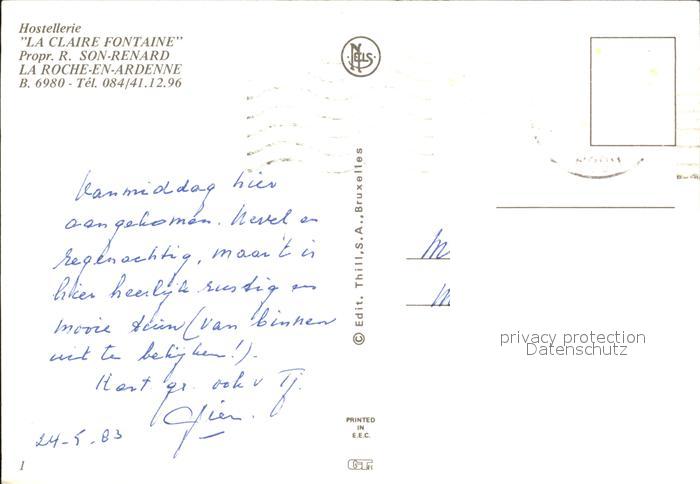 Hostellerie
"LA CLAIRE FONTAINE"
Propr. R. SON-RENARD
LA ROCHE-EN-ARDENNE
B. 6980 - Tél. 084/41.12.96
NELS
© Edit. Thill, S.A., Bruxelles
Vanmiddag hier
aangekomen. Nevel en
regenachtig, maar 't is
hier heerlijk rustig en
mooie tuin (van binnen
uit te bekijken!).
Hart. gr. ook v Tj.
Gien.
24-5-83
1
M
M
privacy protection
Datenschutz
PRINTED
IN
E.E.C.